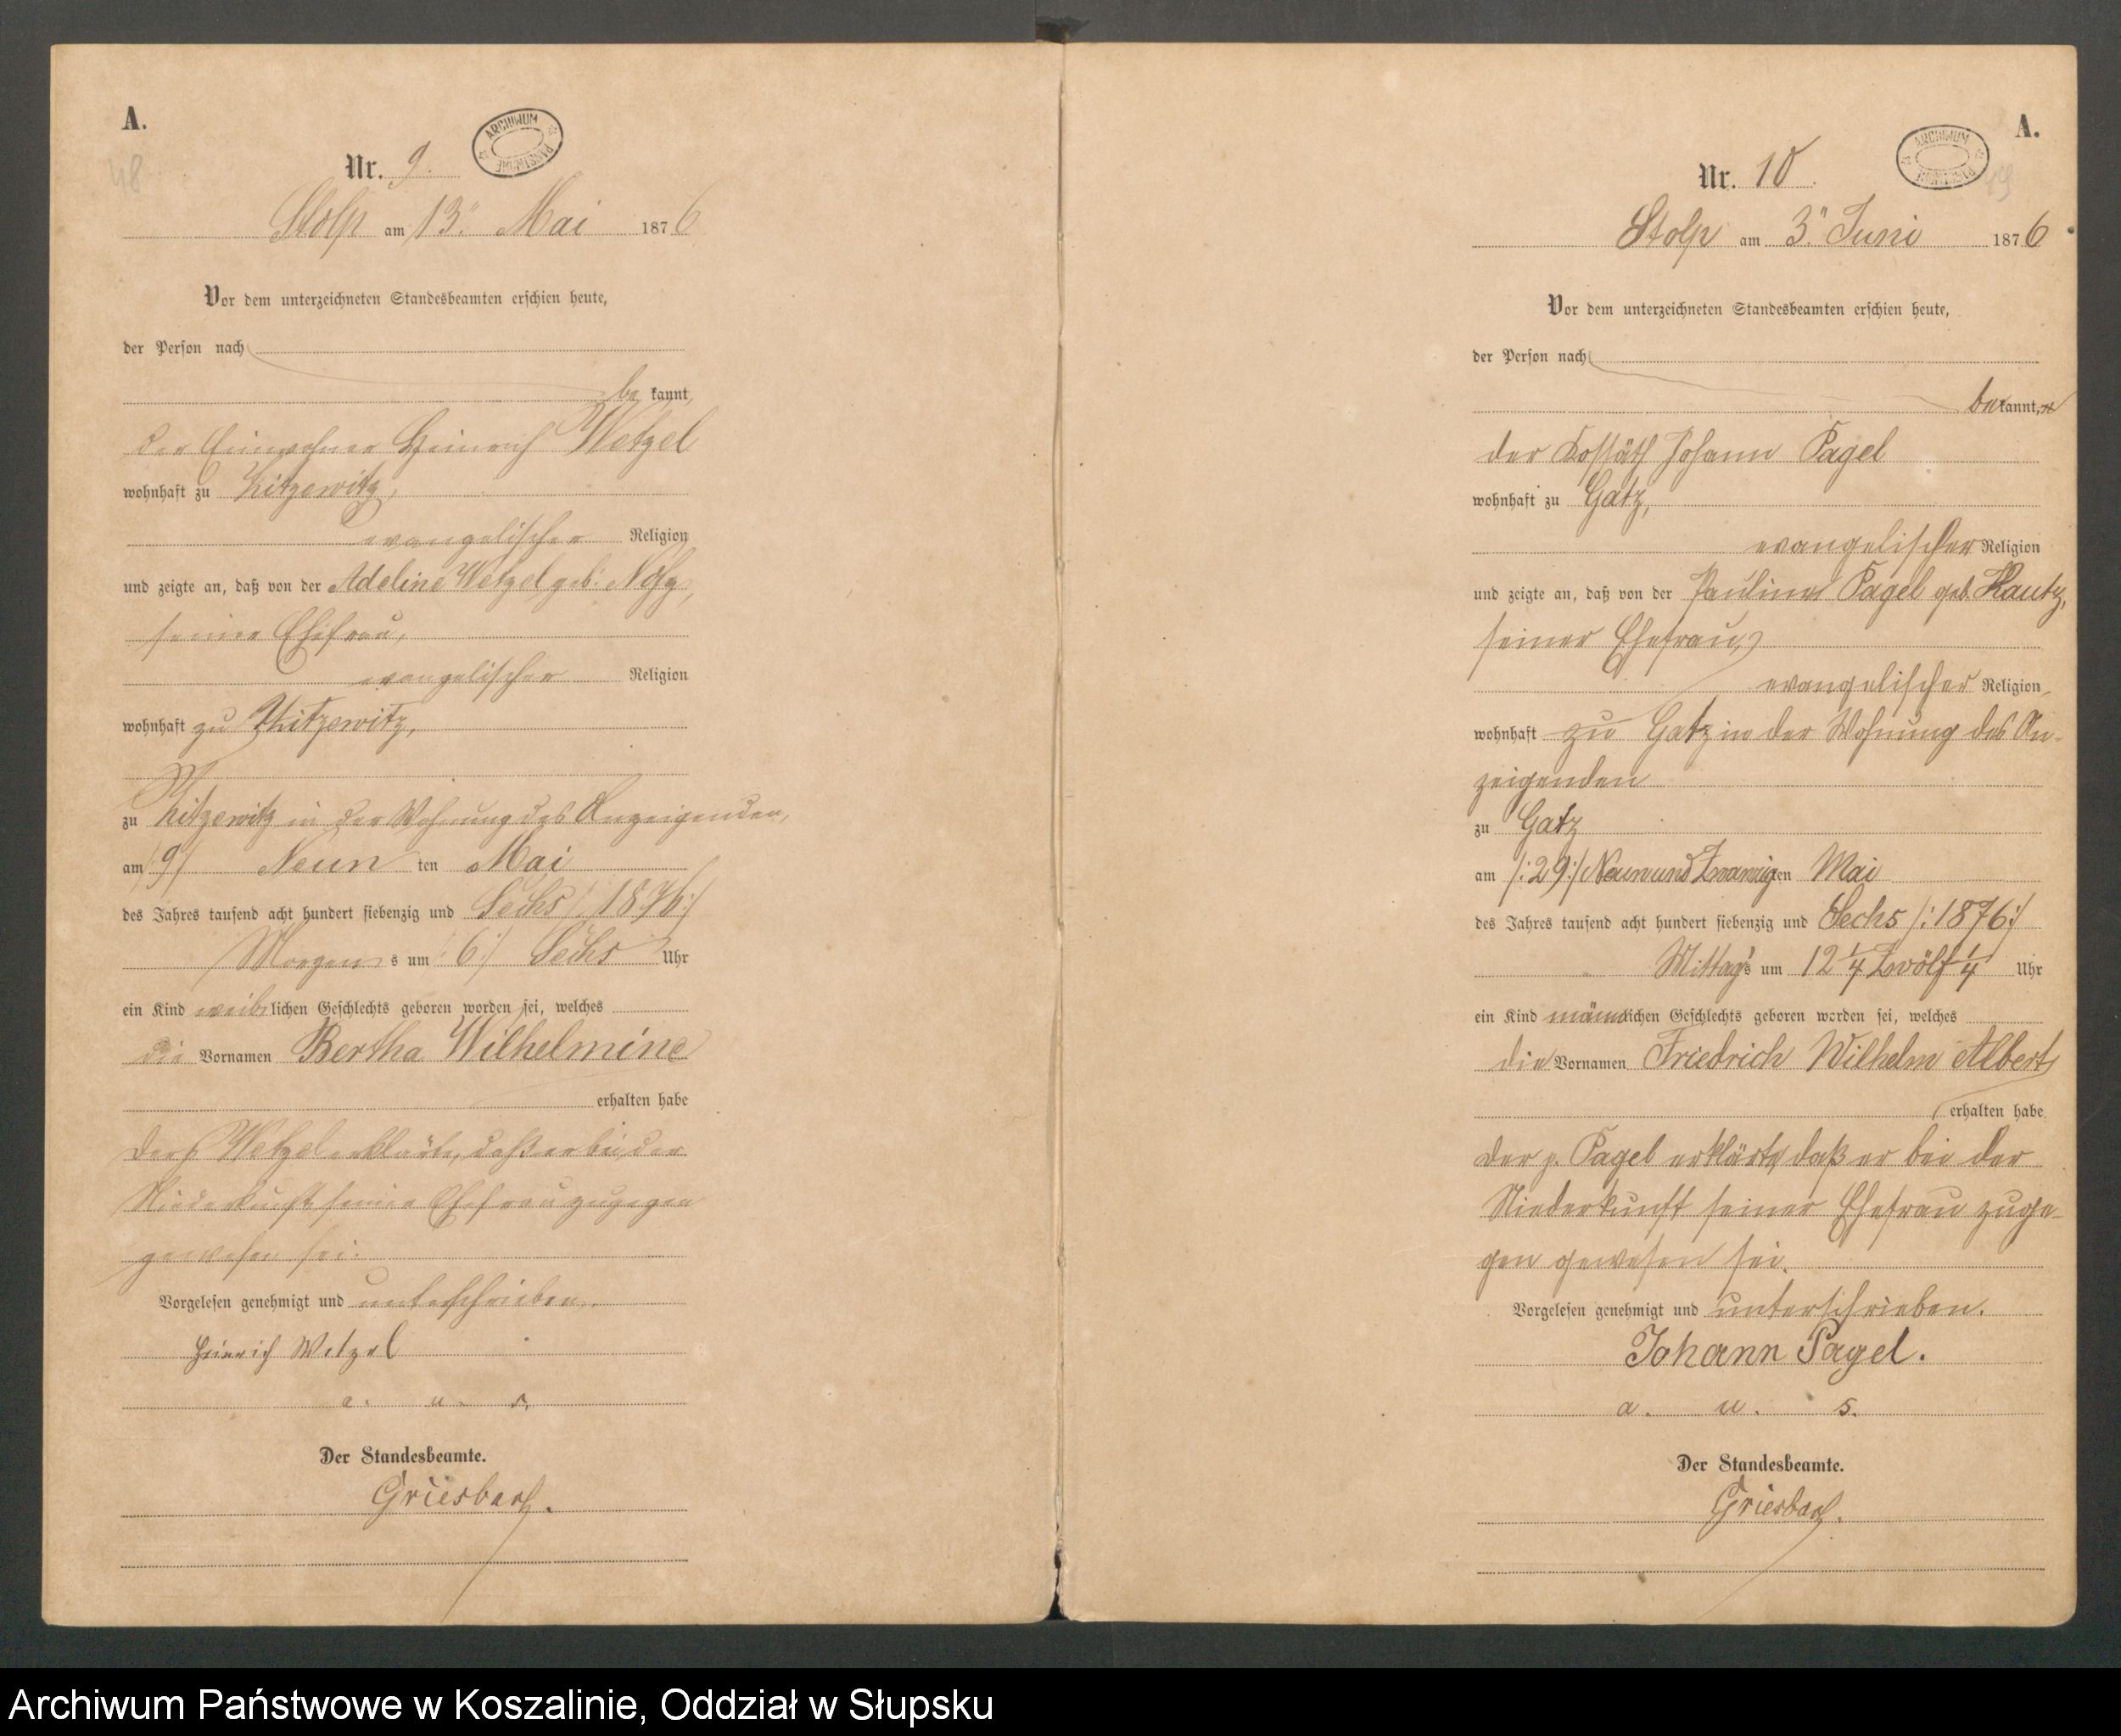 A.
48
ARCHIWUM PAŃSTWOWE
Nr. 9.
Stolp am 13. Mai 1876
Vor dem unterzeichneten Standesbeamten erschien heute,
der Person nach
be kannt,
der Einwohner Heinrich Wetzel
wohnhaft zu Kitzewitz,
evangelischer Religion
und zeigte an, daß von der Adeline Wetzel geb.
seiner Ehefrau,
evangelischer Religion
wohnhaft zu Kitzewitz,
zu Kitzewitz in der Wohnung des Anzeigenden,
am /9/ Neun ten Mai
des Jahres tausend acht hundert siebenzig und Sechs /:1876:/
Morgens um /:6:/ Sechs Uhr
ein Kind weiblichen Geschlechts geboren worden sei, welches
die Vornamen Bertha Wilhelmine
erhalten habe
Der p. Wetzel erklärte, daß er bei der
Niederkunft seiner Ehefrau zugegen
gewesen sei.
Vorgelesen genehmigt und unterschrieben.
Heinrich Wetzel
a. u. s.
Der Standesbeamte.
Griesbach.
A.
49
ARCHIWUM PAŃSTWOWE
Nr. 10.
Stolp am 3. Juni 1876
Vor dem unterzeichneten Standesbeamten erschien heute,
der Person nach
bekannt,
der Kossäth Johann Pagel
wohnhaft zu Gatz,
evangelischer Religion
und zeigte an, daß von der Pauline Pagel geb. Kautz,
seiner Ehefrau,
evangelischer Religion
wohnhaft zu Gatz in der Wohnung des An-
zeigenden
zu Gatz
am /:29:/ Neunundzwanzigten Mai
des Jahres tausend acht hundert siebenzig und Sechs /:1876:/
Mittags um 12 1/4 Zwölf 1/4 Uhr
ein Kind männlichen Geschlechts geboren worden sei, welches
die Vornamen Friedrich Wilhelm Albert
erhalten habe
Der p. Pagel erklärte daß er bei der
Niederkunft seiner Ehefrau zuge-
gen gewesen sei.
Vorgelesen genehmigt und unterschrieben.
Johann Pagel.
a. u. s.
Der Standesbeamte.
Griesbach.
Archiwum Państwowe w Koszalinie, Oddział w Słupsku